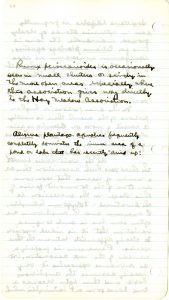 Rumex persicarioides is occasionally
seen in small clusters or singly in
the more open areas especially where
this association gives way directly
to the Hay Meadow Association.
Alisma plantago aquatica frequently
completely dominates the inner area of a
pond or lake that has recently dried up.